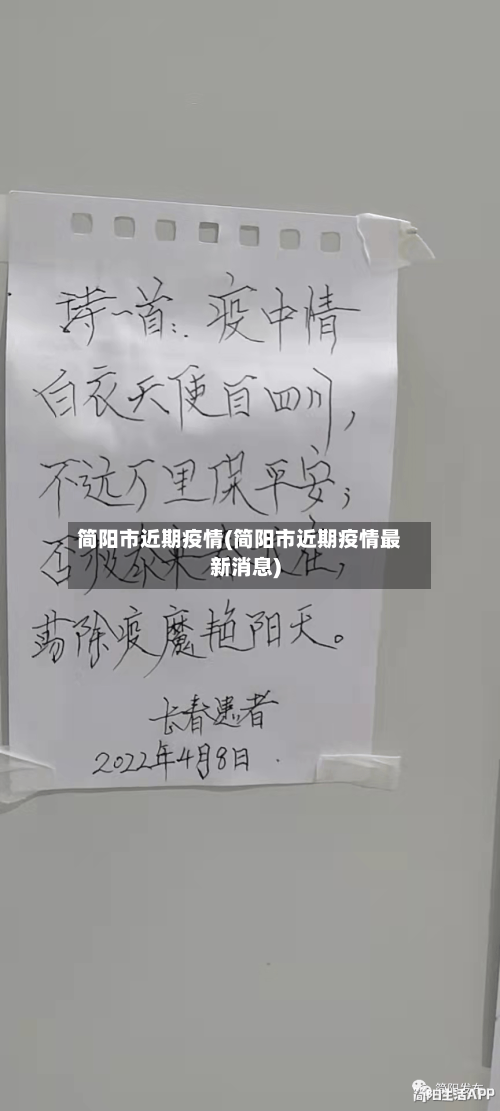 诗一首:. 疫中情
白衣天使自四川,
不远万里保平安;
否极泰来
简阳市近期疫情(简阳市近期疫情最
新消息)
荡除疫魔艳阳天。
长春患者
2022年4月8日
简阳发布
简阳生活APP